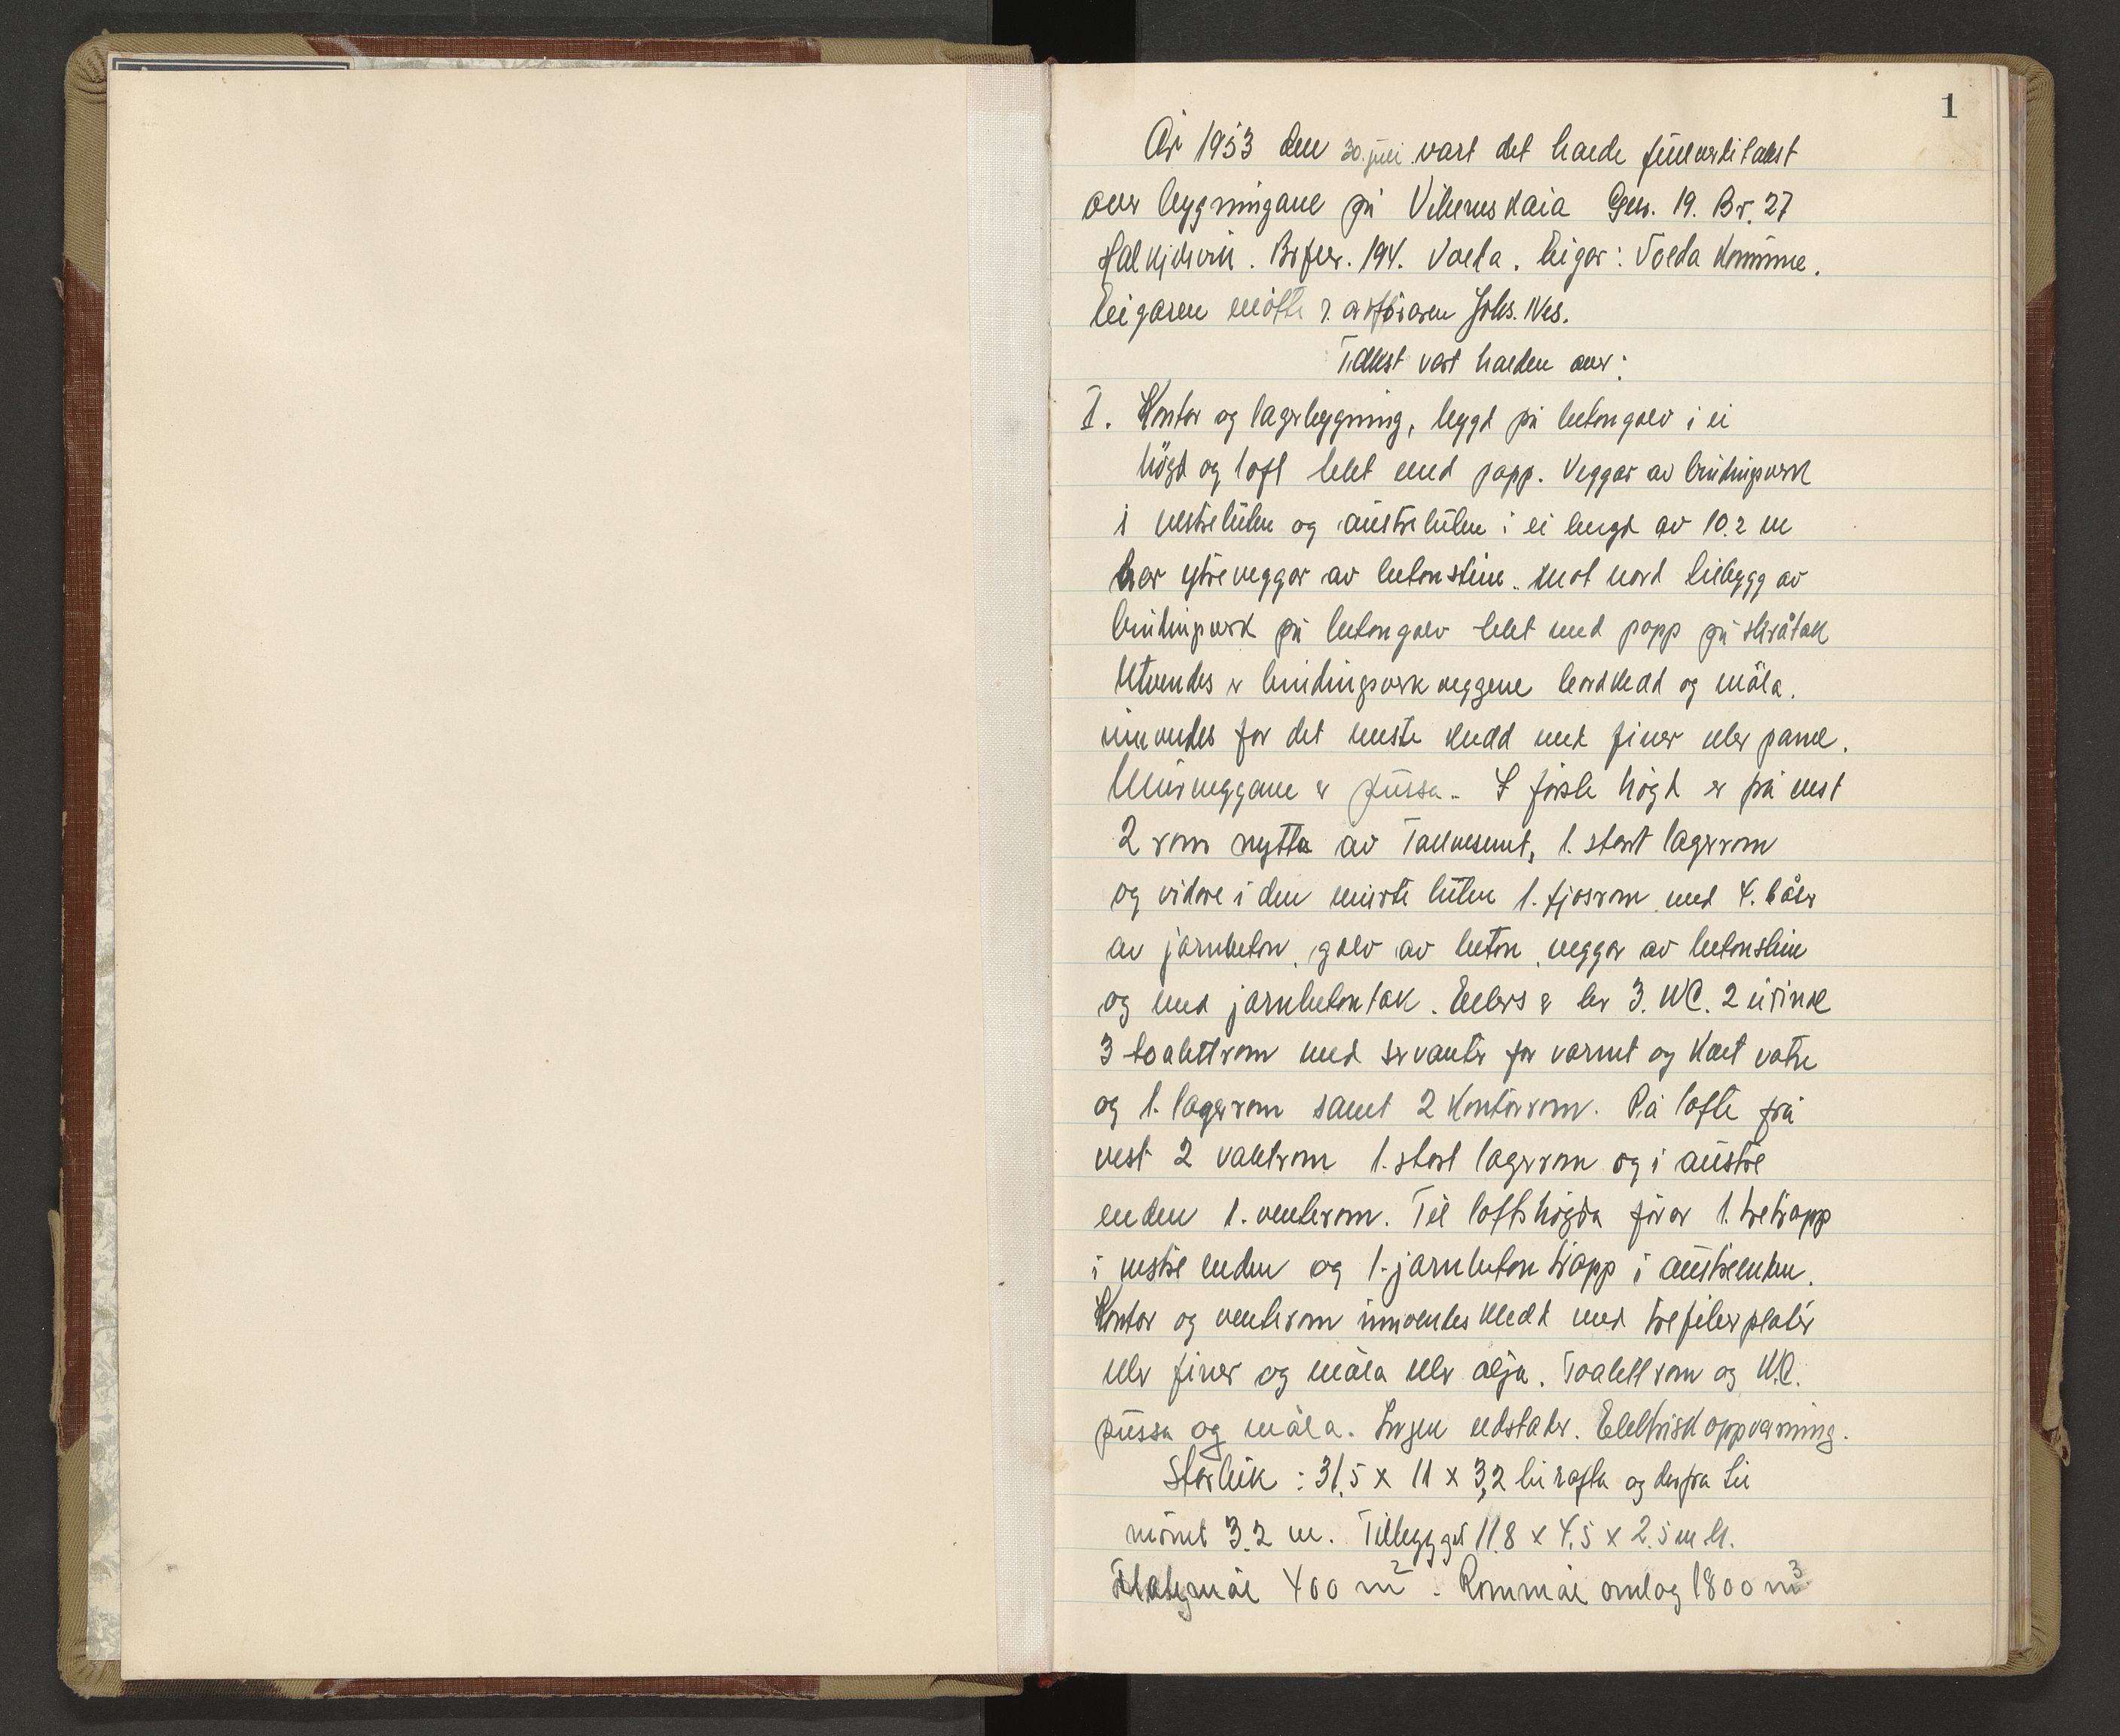 1
År 1953 den 30. juli vart det halde fullverditakst
over bygningane på Vikeneskaia Gnr. 19. Br. 27
Halkjelsvik. Brfnr. 194. Volda. Eigar: Volda Kommune.
Eigaren møtte v. ordføraren Johs. Nes.
Takst vart halden over:
I. Kontor og lagerbygning, bygd på betongolv i ei
högd og loft tekt med papp. Veggar av bindingsverk
i vestre luten og austre luten i ei lengd av 10.2 m
har ytreveggar av betonstein. Mot nord tilbygg av
bindingsverk på betongolv tekt med papp på skråtak
Utvendes er bindingsverkveggene bordkledd og måla.
innvendes for det meste kledd med finer eller panel.
Murveggane er pussa. I første høgd er frå vest
2 rom nytta av Tollvesenet, 1. stort lagerrom
og vidare i den murte luten 1. fjosrom med 4. båser
av jarnbeton, golv av beton, veggar av betonstein
og med jarnbetontak. Ellers er her 3. WC. 2 urinal
3 toalettrom med servanter for varmt og kalt vatn
og 1. lagerrom samt 2 kontorrom. På lofte frå
vest 2 vaktrom 1. stort lagerrom og i austre
enden 1. venterom. Til loftshøgda fører 1. tretrapp
i vestre enden og 1. jarnbeton trapp i austreenden.
Kontor og venterom innvendes kledd med trefiberplater
eller finer og måla eller olja. Toalettrom og W.C.
pussa og måla. Ingen eldstader. Elektrisk oppvarming.
Storleik: 31,5 x 11 x 3,2 til rafta og derfra til
mönet 3.2 m. Tilbygget 11.8 x 4,5 x 2.5 m h.
Flatemål 400 m² - Rommål omlag 1800 m³